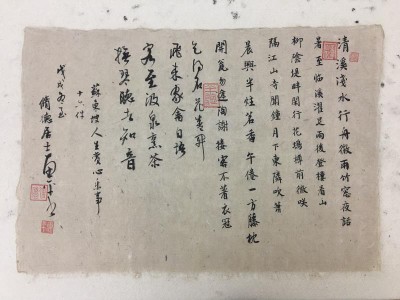 清溪淺水行舟微雨竹窗夜話
暑至臨溪濯足雨後登樓看山
柳陰堤畔閒行花塢樽前微咲
隔江山寺聞鐘月下東隣吹簫
晨興半炷茗香午倦一方藤枕
開瓮勿逢陶謝接客不著衣冠
乞得名花盛開
飛來家禽自語
客至汲泉烹茶
撫琴聽者知音
蘇東坡人生賞心樂事
十六件
戊戌
居士